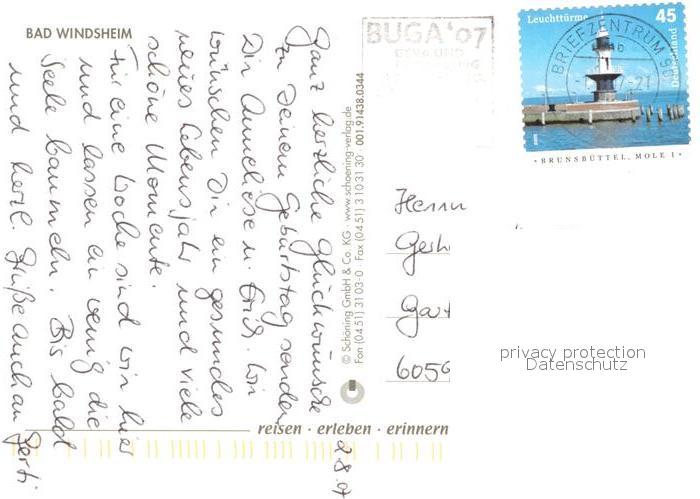 BAD WINDSHEIM
2.8.07
Ganz herzliche Glückwünsche
zu Deinem Geburtstag senden
Dir Anneliese u. Erich. Wir
wünschen Dir ein gesundes
neues Lebensjahr und viele
schöne Momente.
Für eine Woche sind wir hier
und lassen ein wenig die
Seele baumeln. Bis bald
und herzl. Grüße auch an
Gerti
© Schöning GmbH & Co. KG · www.schoening-verlag.de
Fon (04 51) 31 03-0 · Fax (04 51) 3 10 31 30 · 001.91438.0344
reisen · erleben · erinnern
BUGA'07
GERA UND
BRIEFZENTRUM
Leuchttürme 45
Deutschland
· BRUNSBÜTTEL, MOLE 1 ·
Herrn
Gerh
Gart
6059
privacy protection
Datenschutz